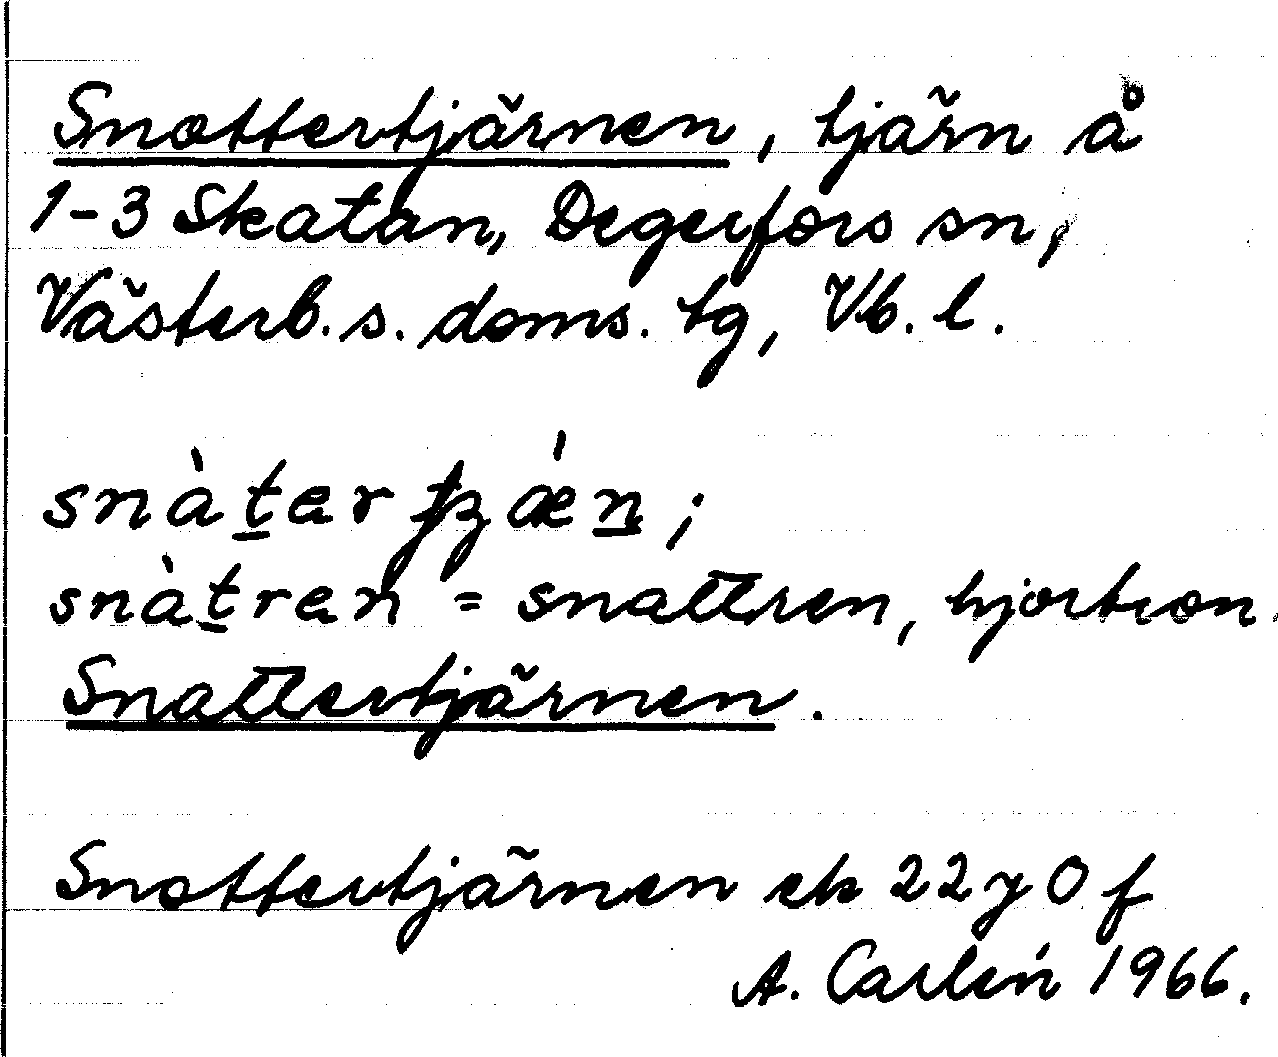 Snottertjärnen, tjärn å
1-3 Skatan, Degerfors sn,
Västerb. s. doms. tg, Vb. l.
snàterƫʒǽn;
snàtren = snattren, hjortron.
Snattertjärnen.
Snottertjärnen ek 22 y 0 f
A. Carlén 1966.